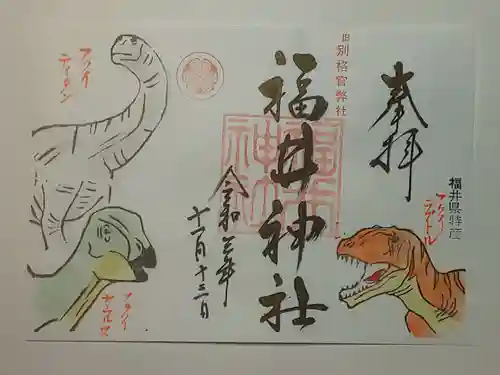 奉拝
福井県特産
フクイ
ラプトル
旧別格官幣社
福井神社
福井神社
令和三年
十一月十三日
フクイ
ティタン
フクイ
サウルス